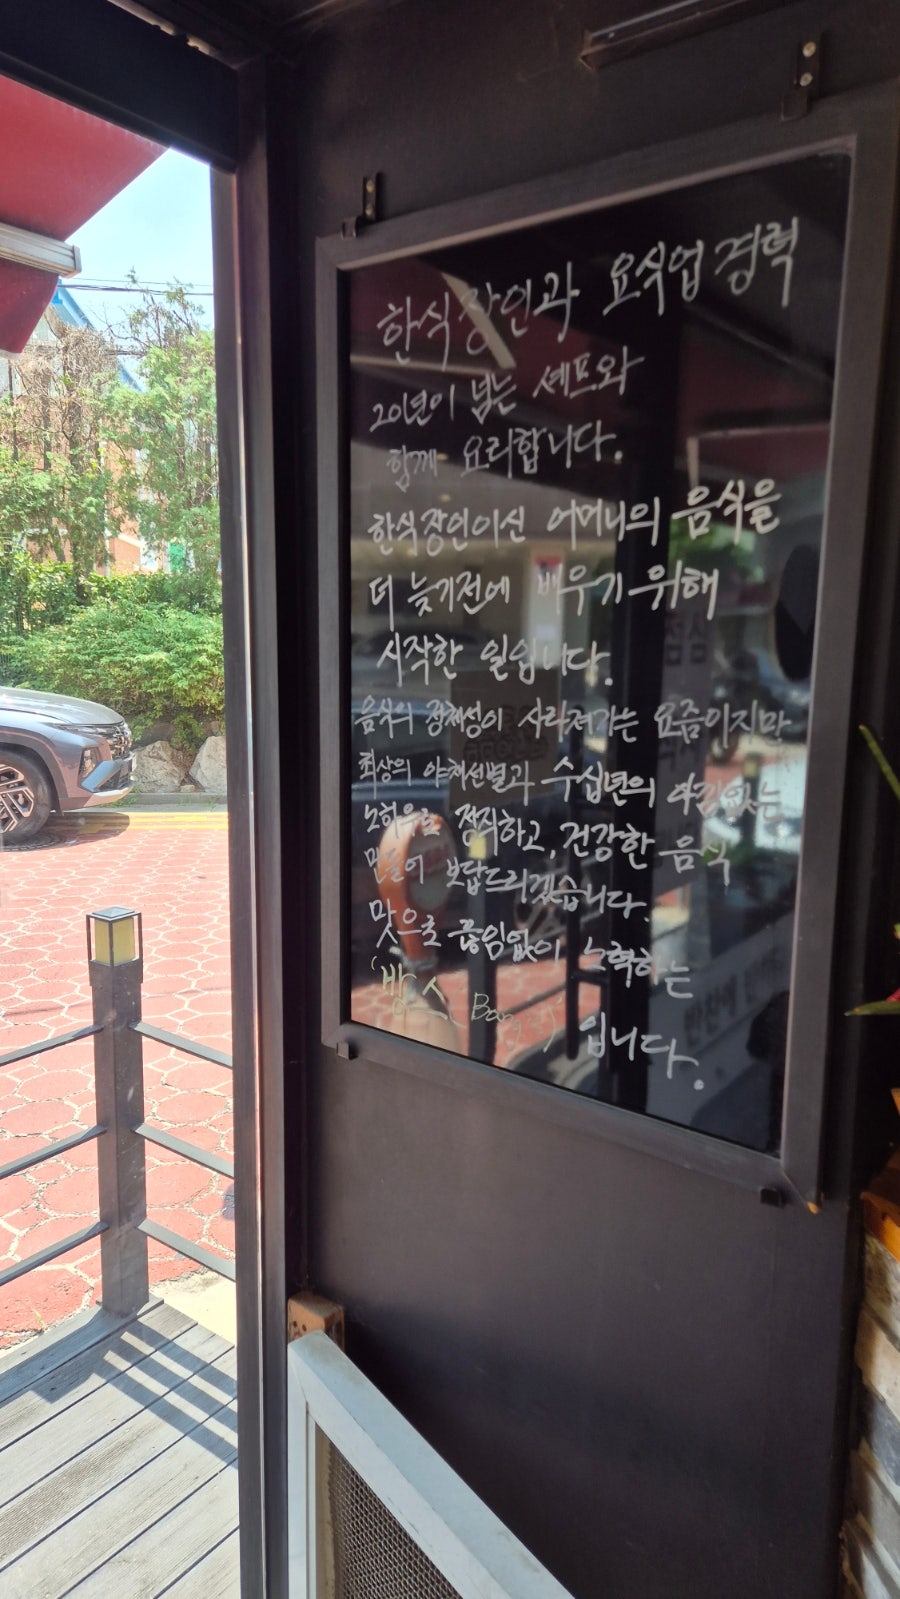 한식장인과 요식업 경력
20년이 넘는 셰프와
함께 요리합니다.
한식장인이신 어머니의 음식을
더 늦기전에 배우기 위해
시작한 일입니다.
음식의 정체성이 사라져가는 요즘이지만
최상의 야채선별과 수십년의 아낌없는
노하우로 정직하고, 건강한 음식
만들어 보답드리겠습니다.
맛으로 끊임없이 노력하는
'밥스 입니다.